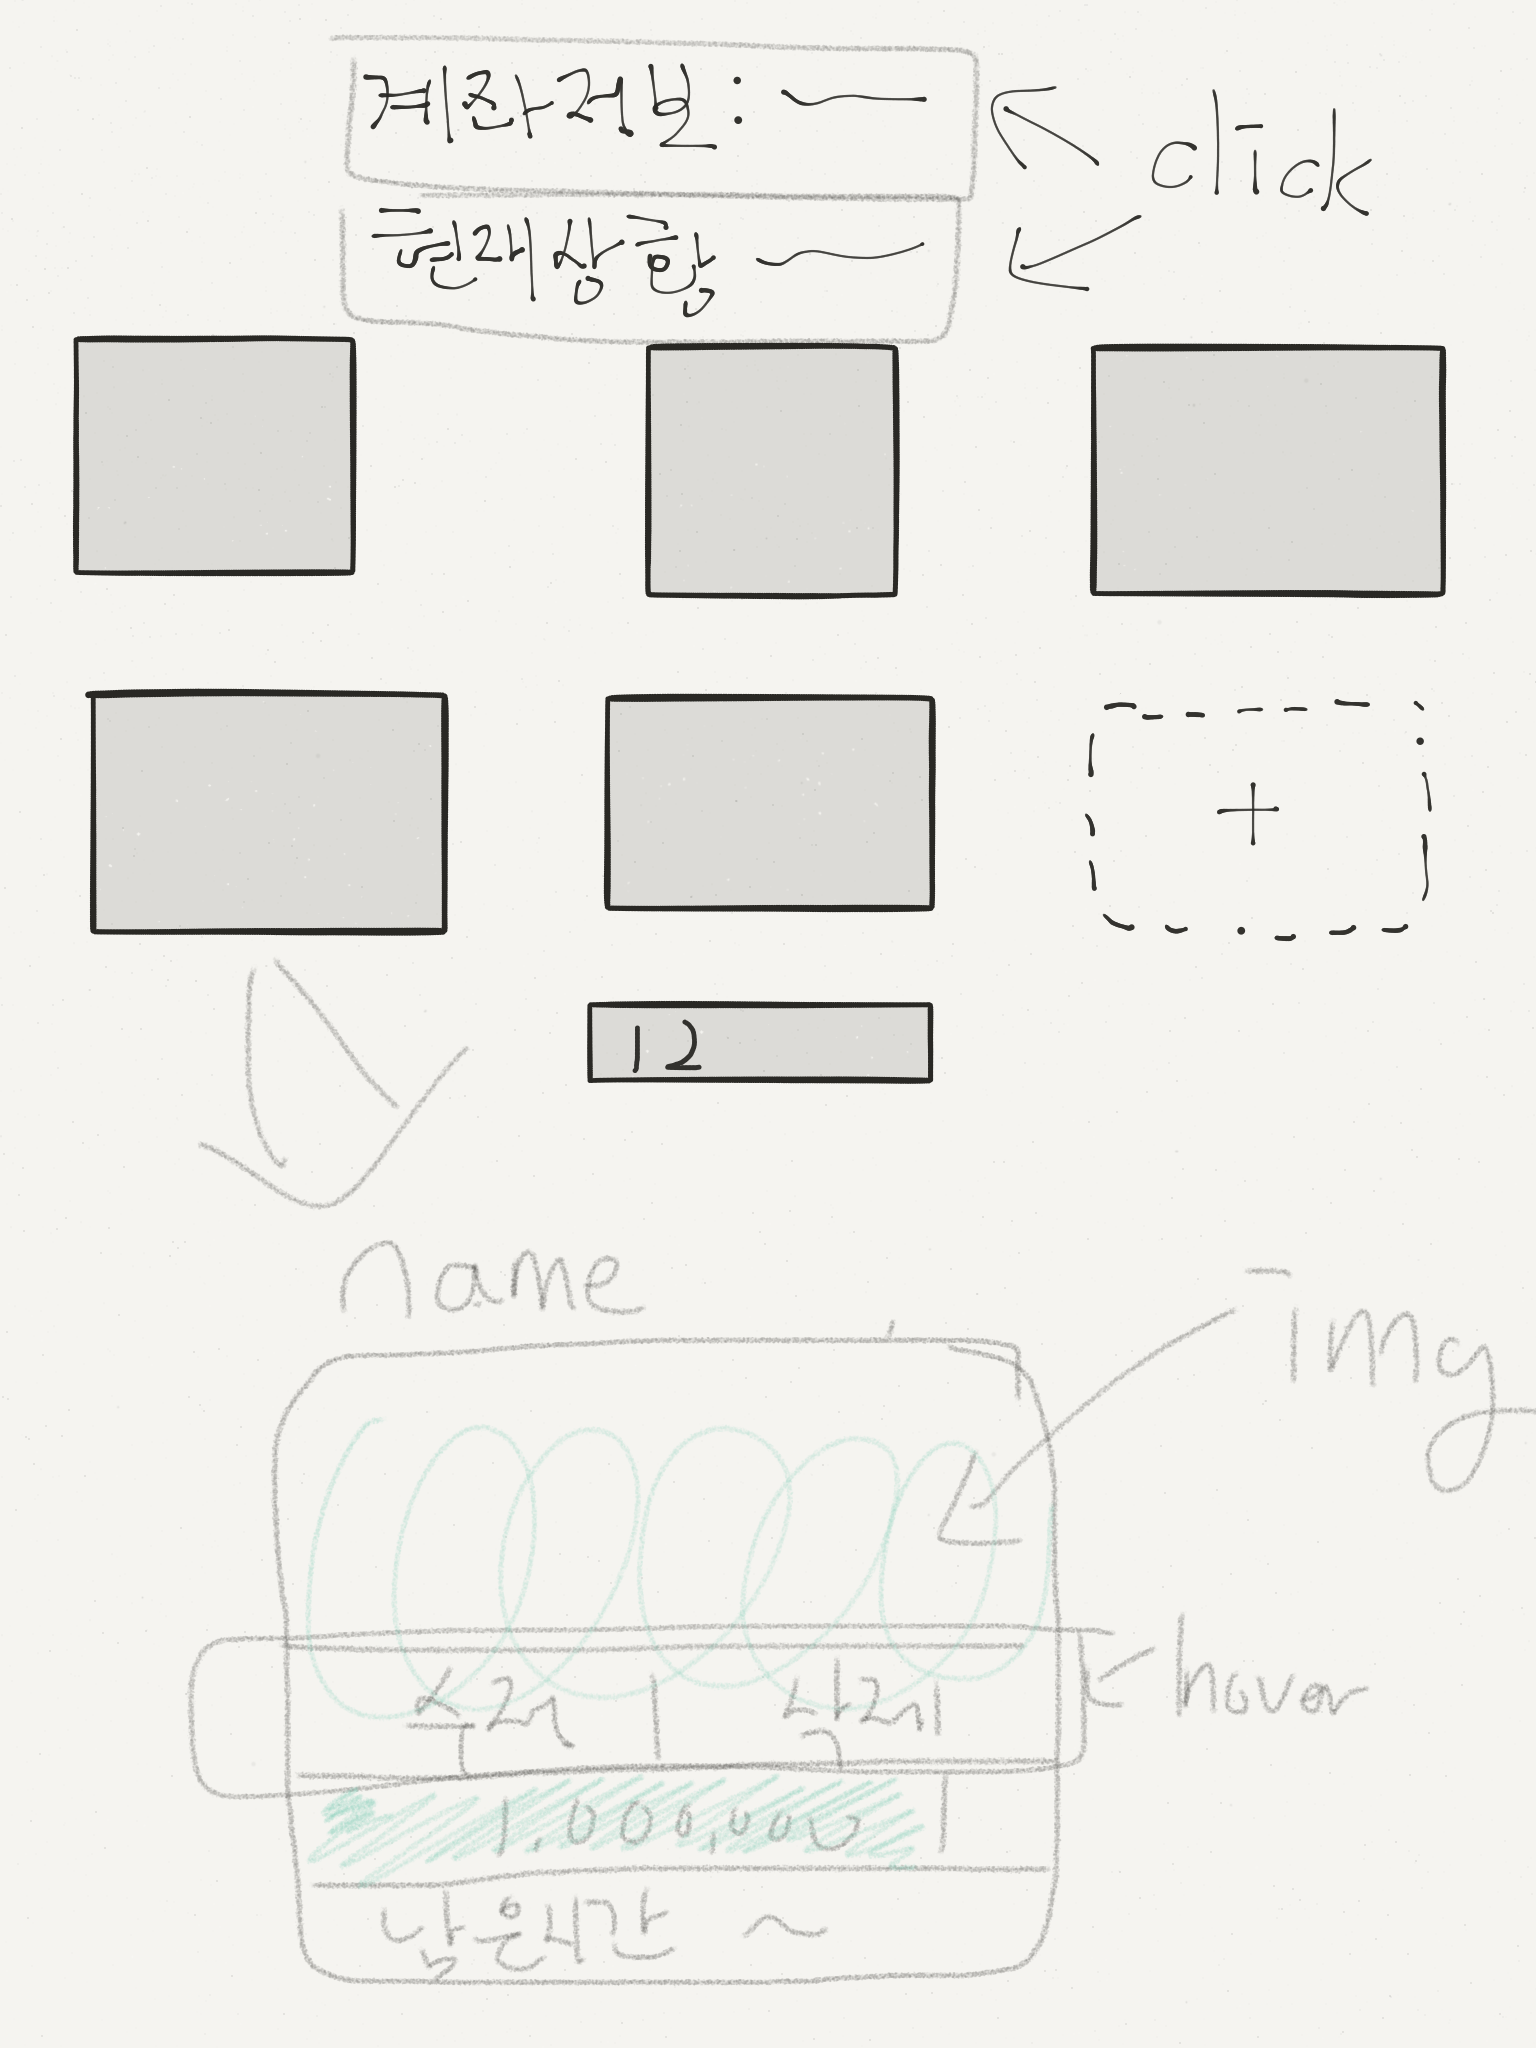 계좌정보 :
click
12
name
img
수정 | 삭제
hover
1,000,000
남은시간 ~